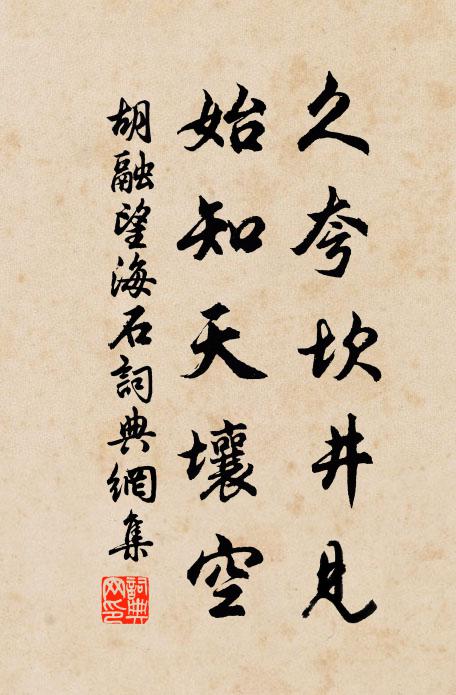 久夸坎井見
始知天壤空
胡融望海石詞典網集
詞典網印